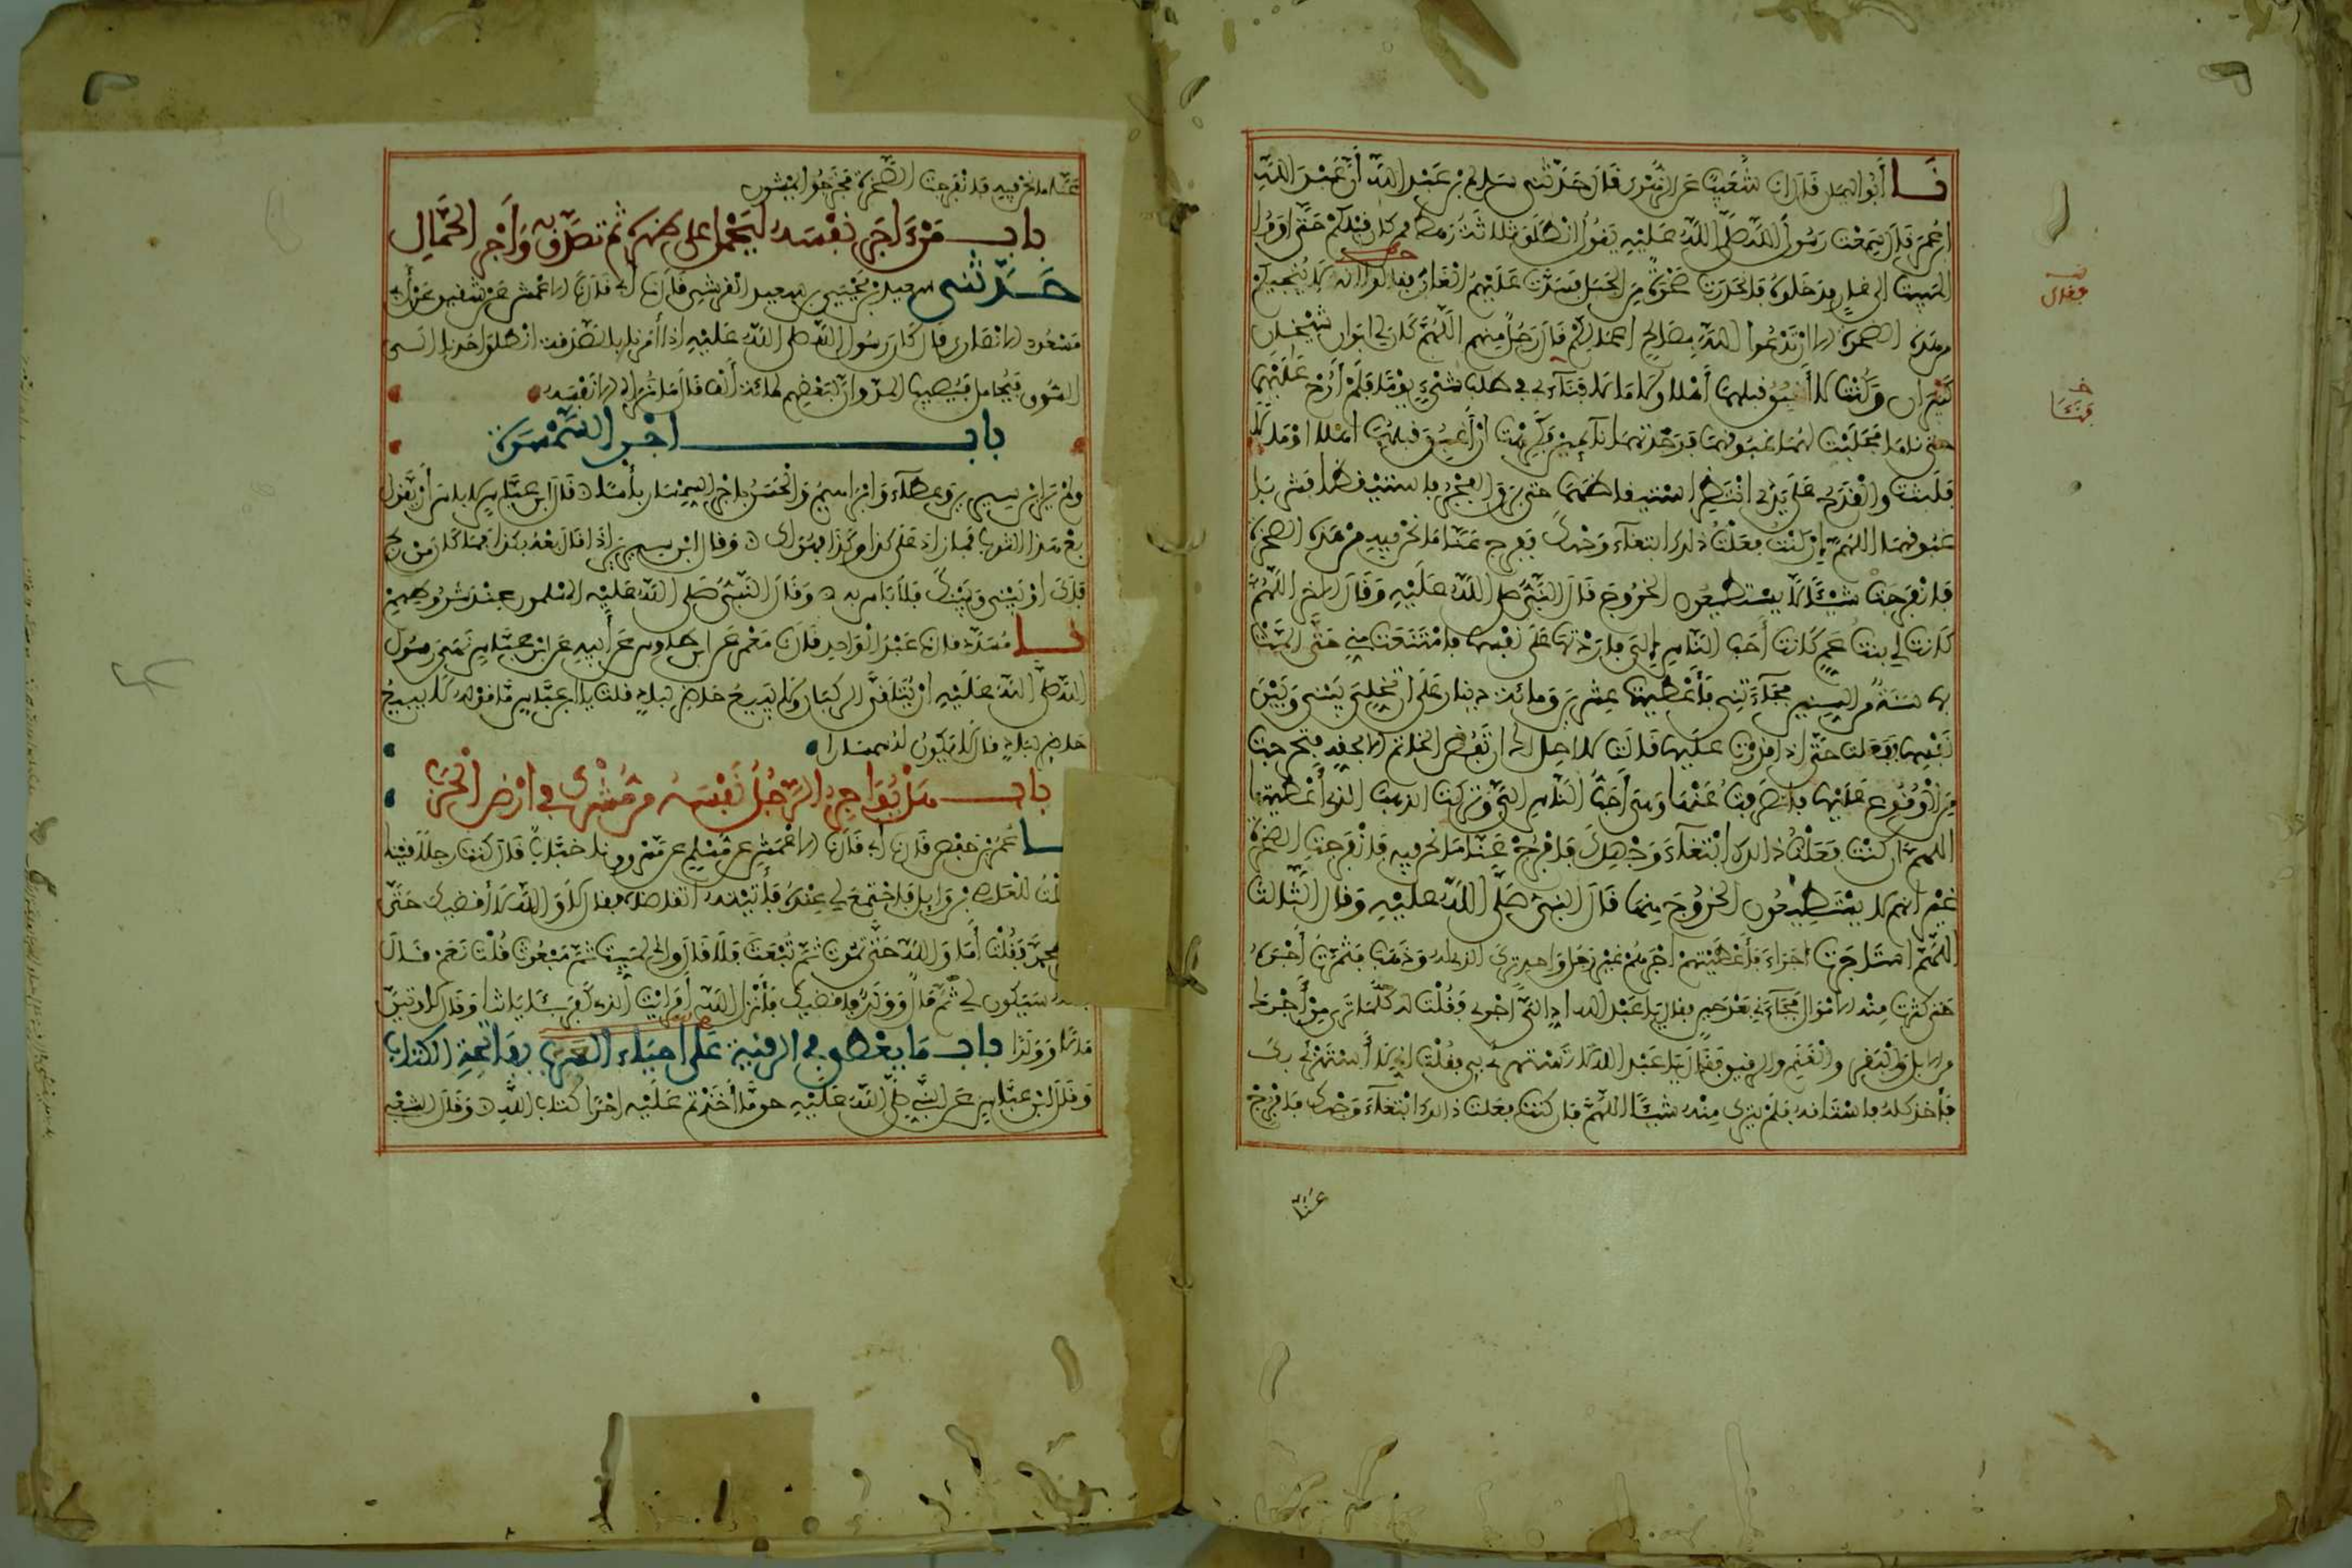 نا أبو اليمان قال أنا شعيب عن الزهري قال حدثني سالم بن عبد الله أن عبد الله
بن عمر قال سمعت رسول الله صلى الله عليه يقول انطلق ثلاثة رهط ممن كان قبلكم حتى أووا
المبيت إلى غار فدخلوه فانحدرت صخرة من الجبل فسدت عليهم الغار فقالوا إنه لا ينجيكم
من هذه الصخرة إلا أن تدعوا الله بصالح أعمالكم قال رجل منهم اللهم كان لي أبوان شيخان
كبيران وكنت لا أغبق قبلهما أهلا ولا مالا فناء بي في طلب شيء يوما فلم أرح عليهما
حتى ناما فحلبت لهما غبوقهما فوجدتهما نائمين فكرهت أن أغبق قبلهما أهلا أو مالا
فلبثت والقدح على يدي أنتظر استيقاظهما حتى برق الفجر فاستيقظا فشربا
غبوقهما اللهم إن كنت فعلت ذلك ابتغاء وجهك ففرج عنا ما نحن فيه من هذه الصخرة
فانفرجت شيئا لا يستطيعون الخروج قال النبي صلى الله عليه وقال الآخر اللهم
كانت لي بنت عم كانت أحب الناس إلي فأردتها على نفسها فامتنعت مني حتى ألمت
بها سنة من السنين فجاءتني فأعطيتها عشرين ومائة دينار على أن تخلي بيني وبين
نفسها ففعلت حتى إذا قدرت عليها قالت لا أحل لك أن تفض الخاتم إلا بحقه فتحرجت
من الوقوع عليها فانصرفت عنها وهي أحب الناس إلي وتركت الذهب الذي أعطيتها
اللهم إن كنت فعلت ذلك ابتغاء وجهك فافرج عنا ما نحن فيه فانفرجت الصخرة
غير أنهم لا يستطيعون الخروج منها قال النبي صلى الله عليه وقال الثالث
اللهم استأجرت أجراء فأعطيتهم أجرهم غير رجل واحد ترك الذي له وذهب فثمرت أجره
حتى كثرت منه الأموال فجاءني بعد حين فقال يا عبد الله أد إلي أجري فقلت له كل ما ترى من أجرك
من الإبل والبقر والغنم والرقيق فقال يا عبد الله لا تستهزئ بي فقلت إني لا أستهزئ بك
فأخذ كله فاستاقه فلم يترك منه شيئا اللهم فإن كنت فعلت ذلك ابتغاء وجهك فافرج
عنا
عنا ما نحن فيه فانفرجت الصخرة فخرجوا يمشون
باب من آجر نفسه ليحمل على ظهره ثم تصدق به وأجر الحمال
حدثني سعيد بن يحيى بن سعيد القرشي قال نا أبي قال نا الأعمش عن شقيق عن أبي
مسعود الأنصاري قال كان رسول الله صلى الله عليه إذا أمرنا بالصدقة انطلق أحدنا إلى
السوق فيحامل فيصيب المد وإن لبعضهم لمائة ألف قال ما نراه إلا نفسه
باب أجر السمسرة
ولم ير ابن سيرين وعطاء وإبراهيم والحسن بأجر السمسار بأسا قال ابن عباس لا بأس أن تقول
بع هذا الثوب فما زاد على كذا وكذا فهو لك وقال ابن سيرين إذا قال بعه بكذا فما كان من ربح
فلك أو بيني وبينك فلا بأس به وقال النبي صلى الله عليه المسلمون عند شروطهم
نا مسدد قال نا عبد الواحد قال نا معمر عن ابن طاوس عن أبيه عن ابن عباس نهى رسول
الله صلى الله عليه أن يتلقى الركبان ولا يبيع حاضر لباد قلت يا ابن عباس ما قوله لا يبيع
حاضر لباد قال لا يكون له سمسارا
باب هل يؤاجر الرجل نفسه من مشرك في أرض الحرب
نا عمر بن حفص قال نا أبي قال نا الأعمش عن مسلم عن مسروق نا خباب قال كنت رجلا قينا
للعاص بن وائل فاجتمع لي عنده فأتيته أتقاضاه فقال لا والله لا أقضيك حتى
بمحمد فقلت أما والله حتى تموت ثم تبعث فلا قال وإني لميت ثم مبعوث قلت نعم قال
سيكون لي ثم مال وولد فأقضيك فأنزل الله أفرأيت الذي كفر بآياتنا وقال لأوتين
مالا وولدا باب ما يعطى في الرقية على أحياء العرب بفاتحة الكتاب
وقال ابن عباس عن النبي صلى الله عليه أحق ما أخذتم عليه أجرا كتاب الله وقال الشعبي